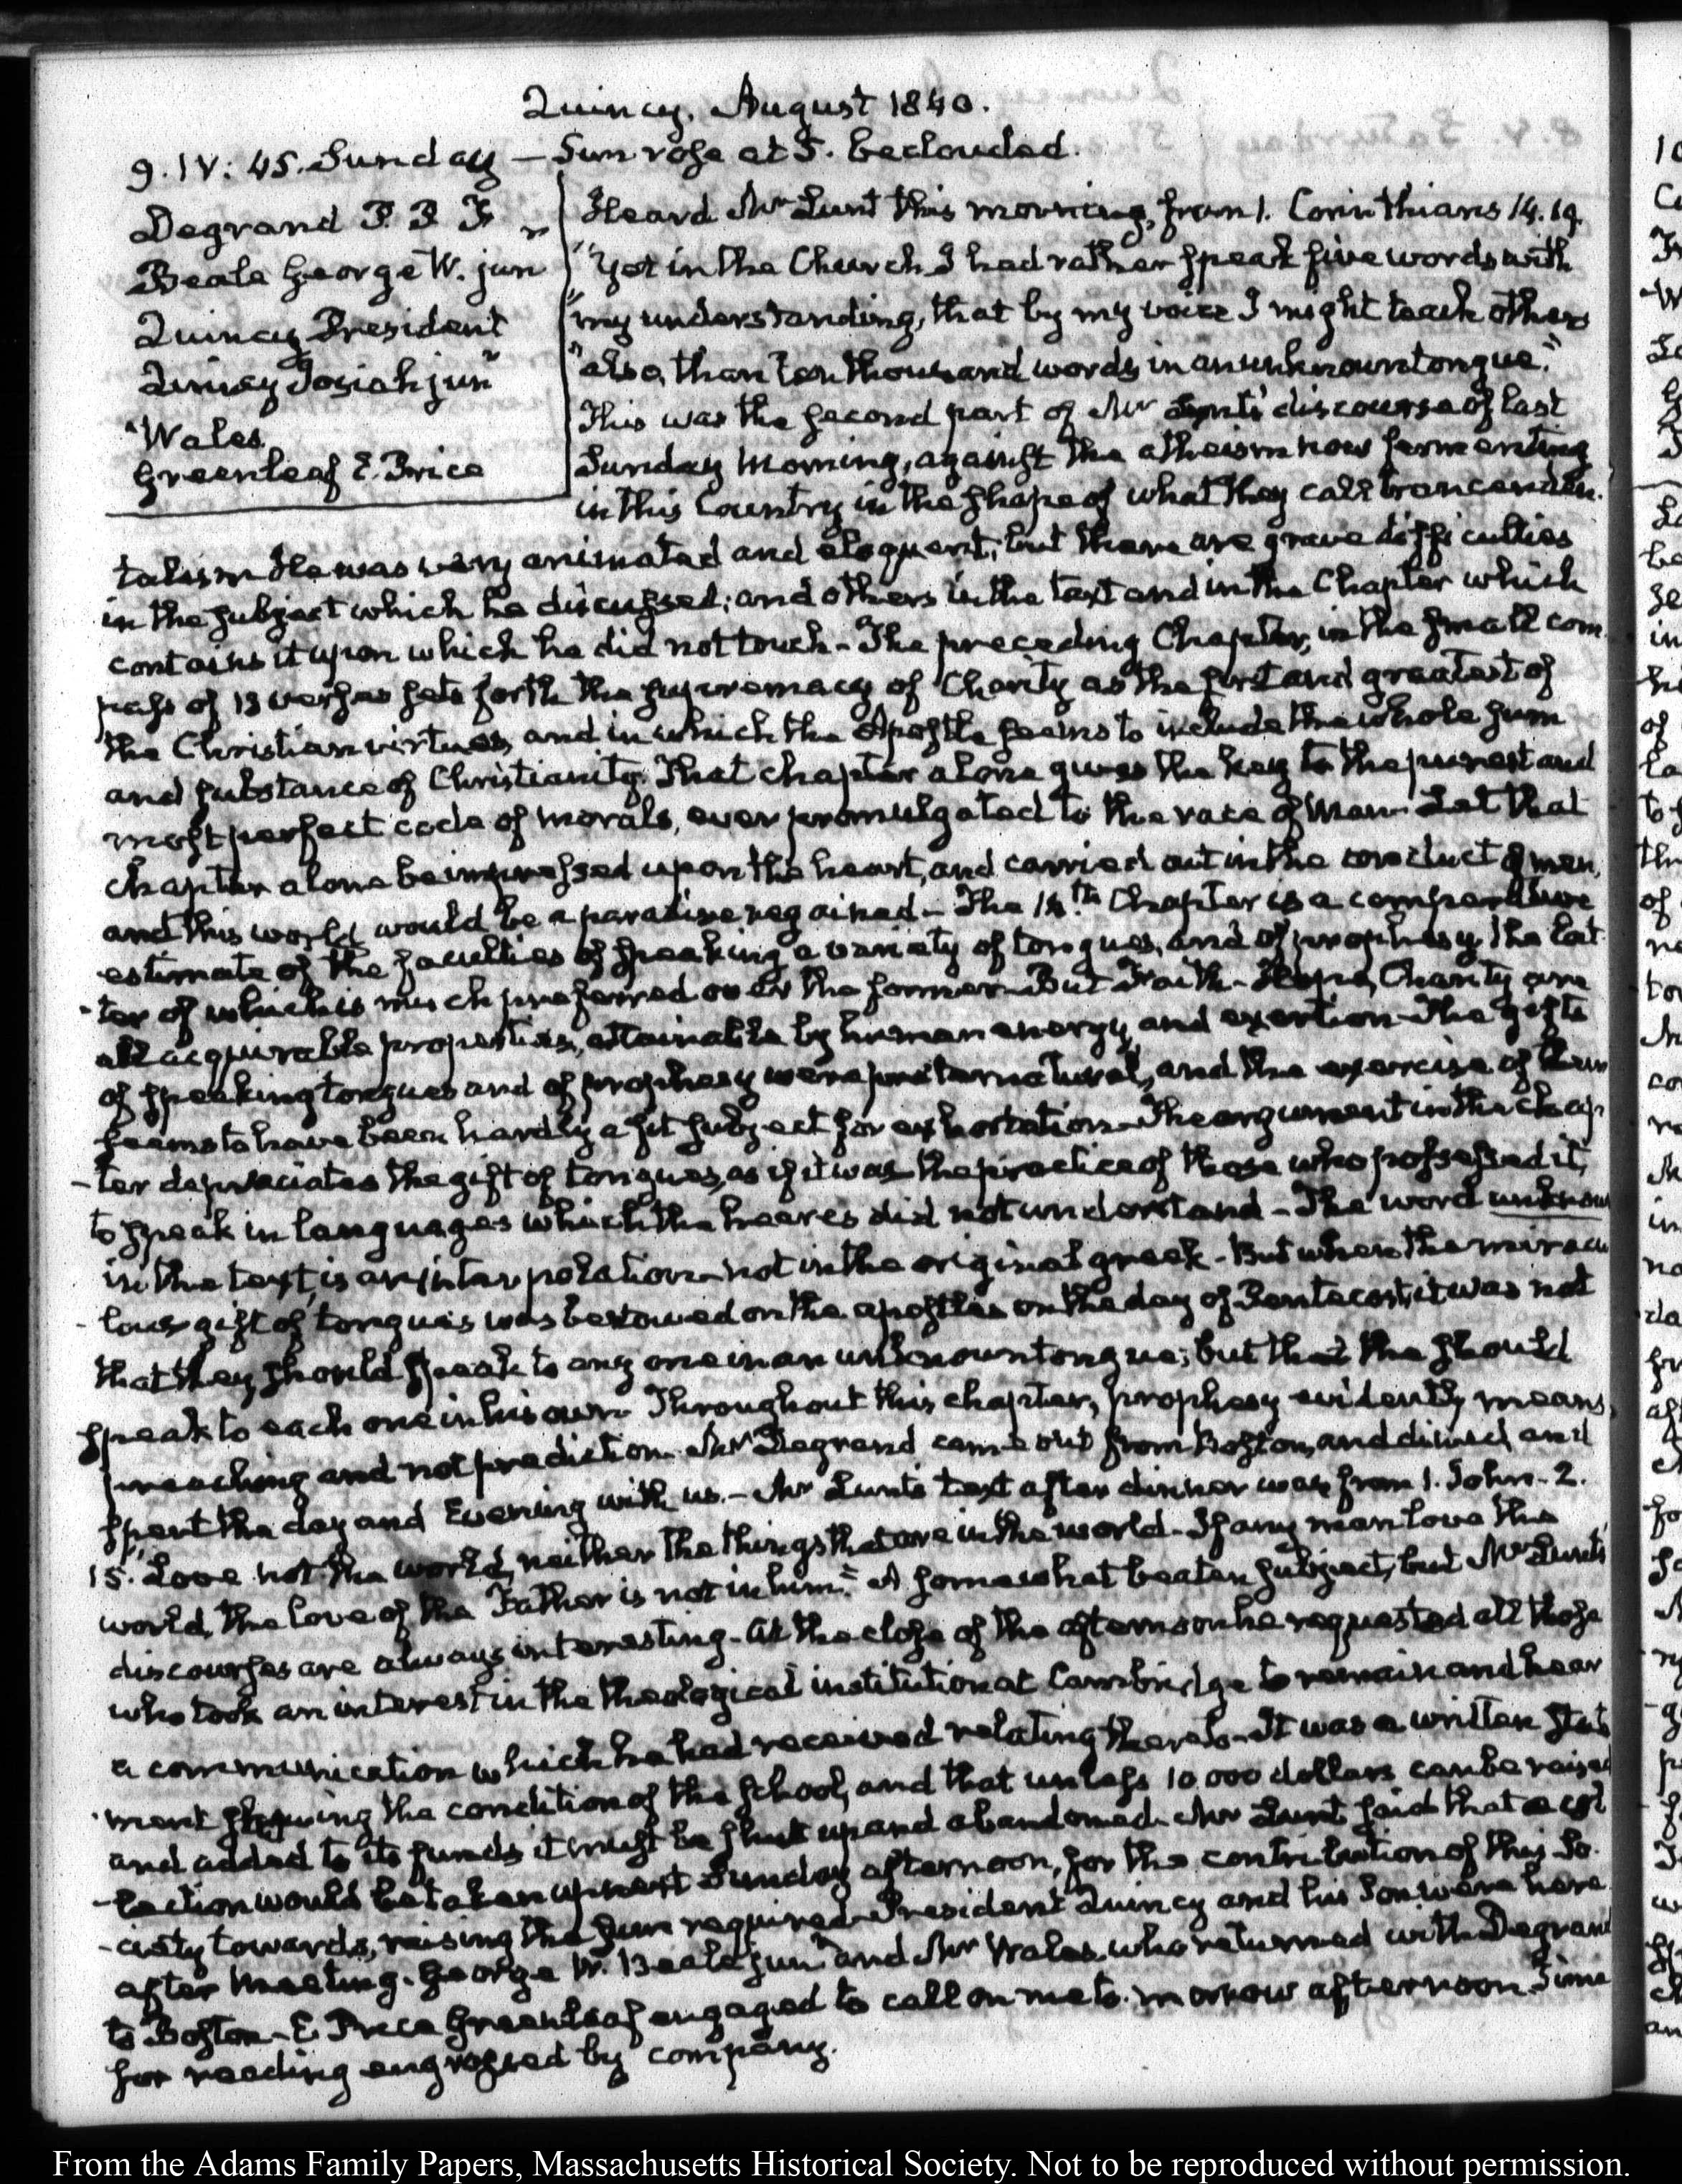 Quincy. August 1840.
9. IV: 45. Sunday — Sun rose at 5. beclouded.
Degrand P. P. F
Beale George W. jun
Quincy President
Quincy Josiah jun
"Wales
Greenleaf E. Price
Heard Mr Lunt this morning, from 1. Corinthians 14.19.
"Yet in the Church I had rather speak five words with
"my understanding, that by my voice I might teach others
"also, than ten thousand words in an unknown tongue."
This was the second part of Mr Lunt's discourse of last
Sunday Morning, against the atheism now fermenting
in this Country in the shape of what they call trancenden-
talism. He was very animated and eloquent, but there are grave difficulties
in the subject which he discussed; and others in the text and in the Chapter which
contains it upon which he did not touch - The preceding Chapter, in the small com
pass of 13 verses sets forth the supremacy of Charity as the first and greatest of
the Christian virtues, and in which the Apostle seems to include the whole sum
and substance of Christianity. That chapter alone gives the key to the purest and
most perfect code of morals, ever promulgated to the race of Man. Let that
chapter alone be impressed upon the heart, and carried out in the conduct of men,
and this world would be a paradise regained - The 14th Chapter is a comparative
estimate of the faculties of speaking a variety of tongues, and of prophesy, the lat
-ter of which is much preferred over the former - But Faith - Hope, Charity are
all acquirable properties, attainable by human energy, and exertion - The gifts
of speaking tongues and of prophesy were preternatural, and the exercise of them
seems to have been hardly a fit subject for exhortation - The argument in the chap
-ter depreciates the gift of tongues, as if it was the practice of those who possessed it,
to speak in languages which the heares did not understand - The word unknown
in the text, is an interpolation - not in the original greek - But when the miracu
-lous gift of tongues was bestowed on the apostles on the day of Pentecost, it was not
that they should speak to any one in an unknown tongue; but that the should
speak to each one in his own - Throughout this chapter, prophesy evidently means
preaching and not prediction. Mr Degrand came out from Boston, and dined, and
spent the day and Evening with us. - Mr Lunt's text after dinner was from 1. John. 2.
15. Love not the world, neither the things that are in the world - If any man love the
world, the love of the Father is not in him." A somewhat beaten subject, but Mr Lunt's
discourses are always interesting - At the close of the afternoon he requested all those
who took an interest in the theological institution at Cambridge to remain and hear
a communication which he had received relating thereto - It was a written state
-ment shewing the condition of the school, and that unless 10 000 dollars can be raised
and added to its funds it must be shut up and abandoned. Mr Lunt said that a col
-lection would be taken up next Sunday afternoon, for the contribution of this So-
-ciety towards, raising the sum required - President Quincy and his Son were here
after Meeting. George W. Beale jun and Mr Wales, who returned with Degrand
to Boston - E. Price Greenleaf engaged to call on me to-morrow afternoon. Time
for reading engrossed by company.
From the Adams Family Papers, Massachusetts Historical Society. Not to be reproduced without permission.